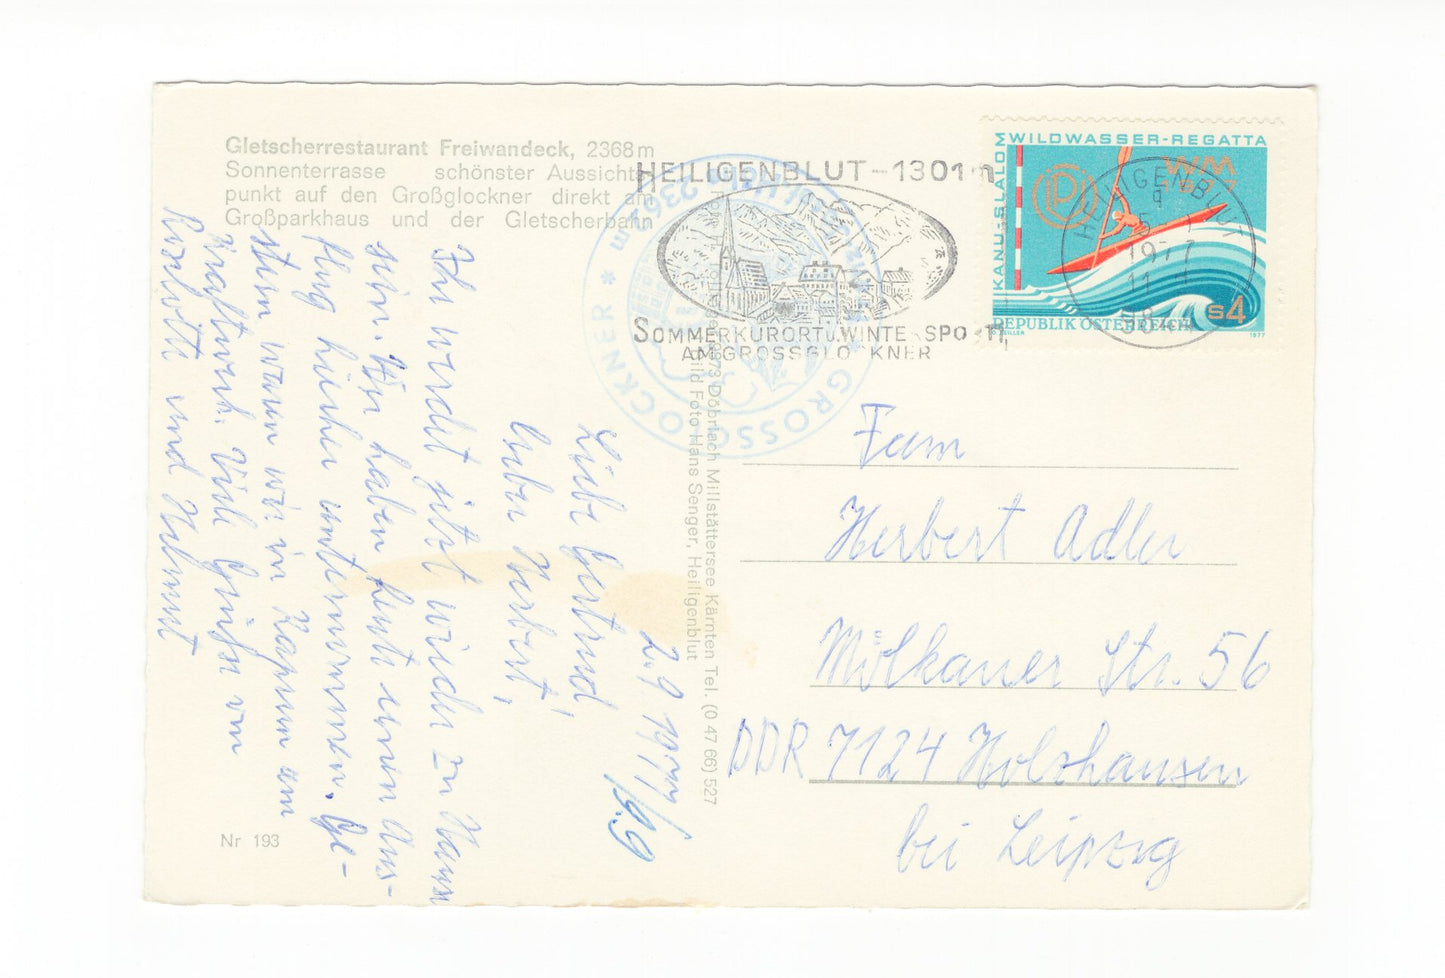 Gletscherrestaurant Freiwandeck, 2368 m
Sonnenterrasse schönster Aussichts-
punkt auf den Großglockner direkt am
Großparkhaus und der Gletscherbahn
HEILIGENBLUT – 1301m
SOMMERKURORT u. WINTERSPORT
AM GROSSGLOCKNER
KANU-SLALOM
WILDWASSER-REGATTA
WM
1977
REPUBLIK ÖSTERREICH
S4
1977
HEILIGENBLUT
5. 9
1977
11
9844
GROSSGLOCKNER
9873 Döbriach Millstättersee Kärnten Tel. (0 47 66) 527
Bild Foto Hans Senger, Heiligenblut
2.9.1977
14.9
Liebe Gertrud,
lieber Herbert,
Ihr werdet jetzt wieder zu Hause
sein. Wir haben heute einen Aus-
flug hierher unternommen. Ge-
stern waren wir in Kaprun am
Kraftwerk. Viele Grüße von
und Helmut
Fam
Herbert Adler
Mölkauer Str. 56
DDR 7124 Holzhausen
bei Leipzig
Nr 193